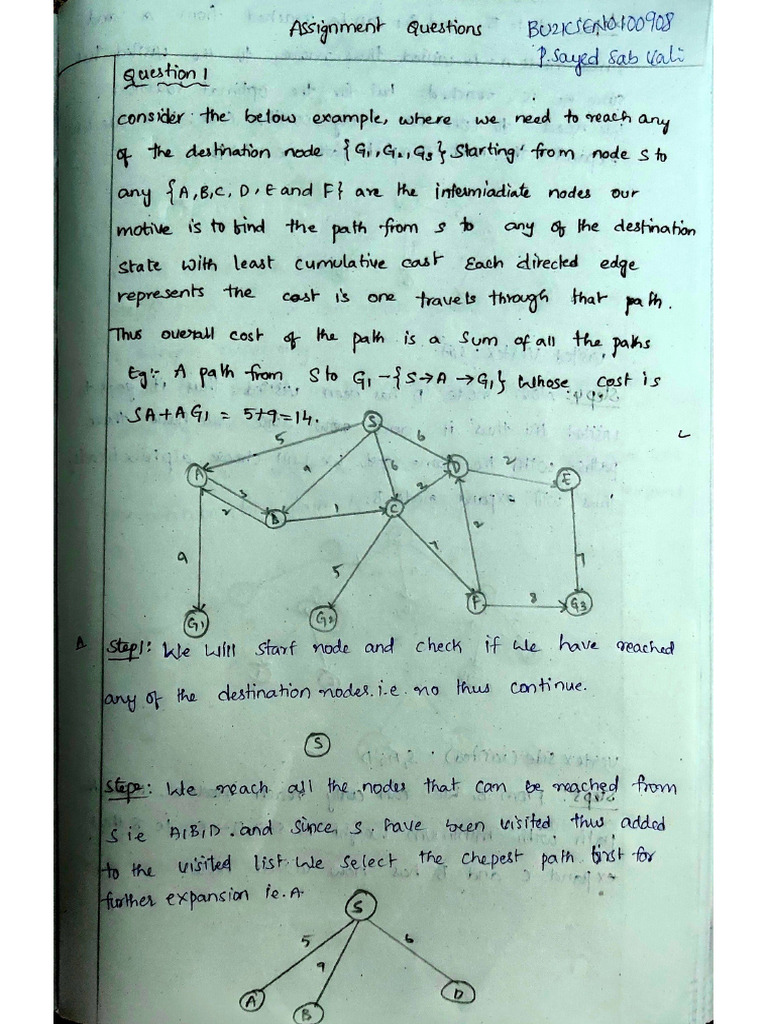 Assignment Questions BU21CSEN0100908
P. Sayed Sab Vali
Question 1
consider the below example, where we need to reach any
of the destination node {G1, G2, G3} Starting from node S to
any {A, B, C, D, E and F} are the intermiadiate nodes our
motive is to find the path from s to any of the destination
state with least cumulative cast Each directed edge
represents the cost is one travels through that path.
Thus overall cost of the path is a sum of all the paths
Eg:- A path from S to G1 - {S→A→G1} whose cost is
SA + AG1 = 5+9=14.
S
5 6
A 9 6 D 2 E
3 2
2 B 1 C
9 7 2 7
5
G1 G2 F 8 G3
A Step1: We will start node and check if we have reached
any of the destination nodes. i.e. no thus continue.
S
Step2: We reach all the nodes that can be reached from
S ie A, B, D. and since, s. have been visited thus added
to the visited list. We select the chepest path first for
further expansion ie. A.
S
5 9 6
A B D